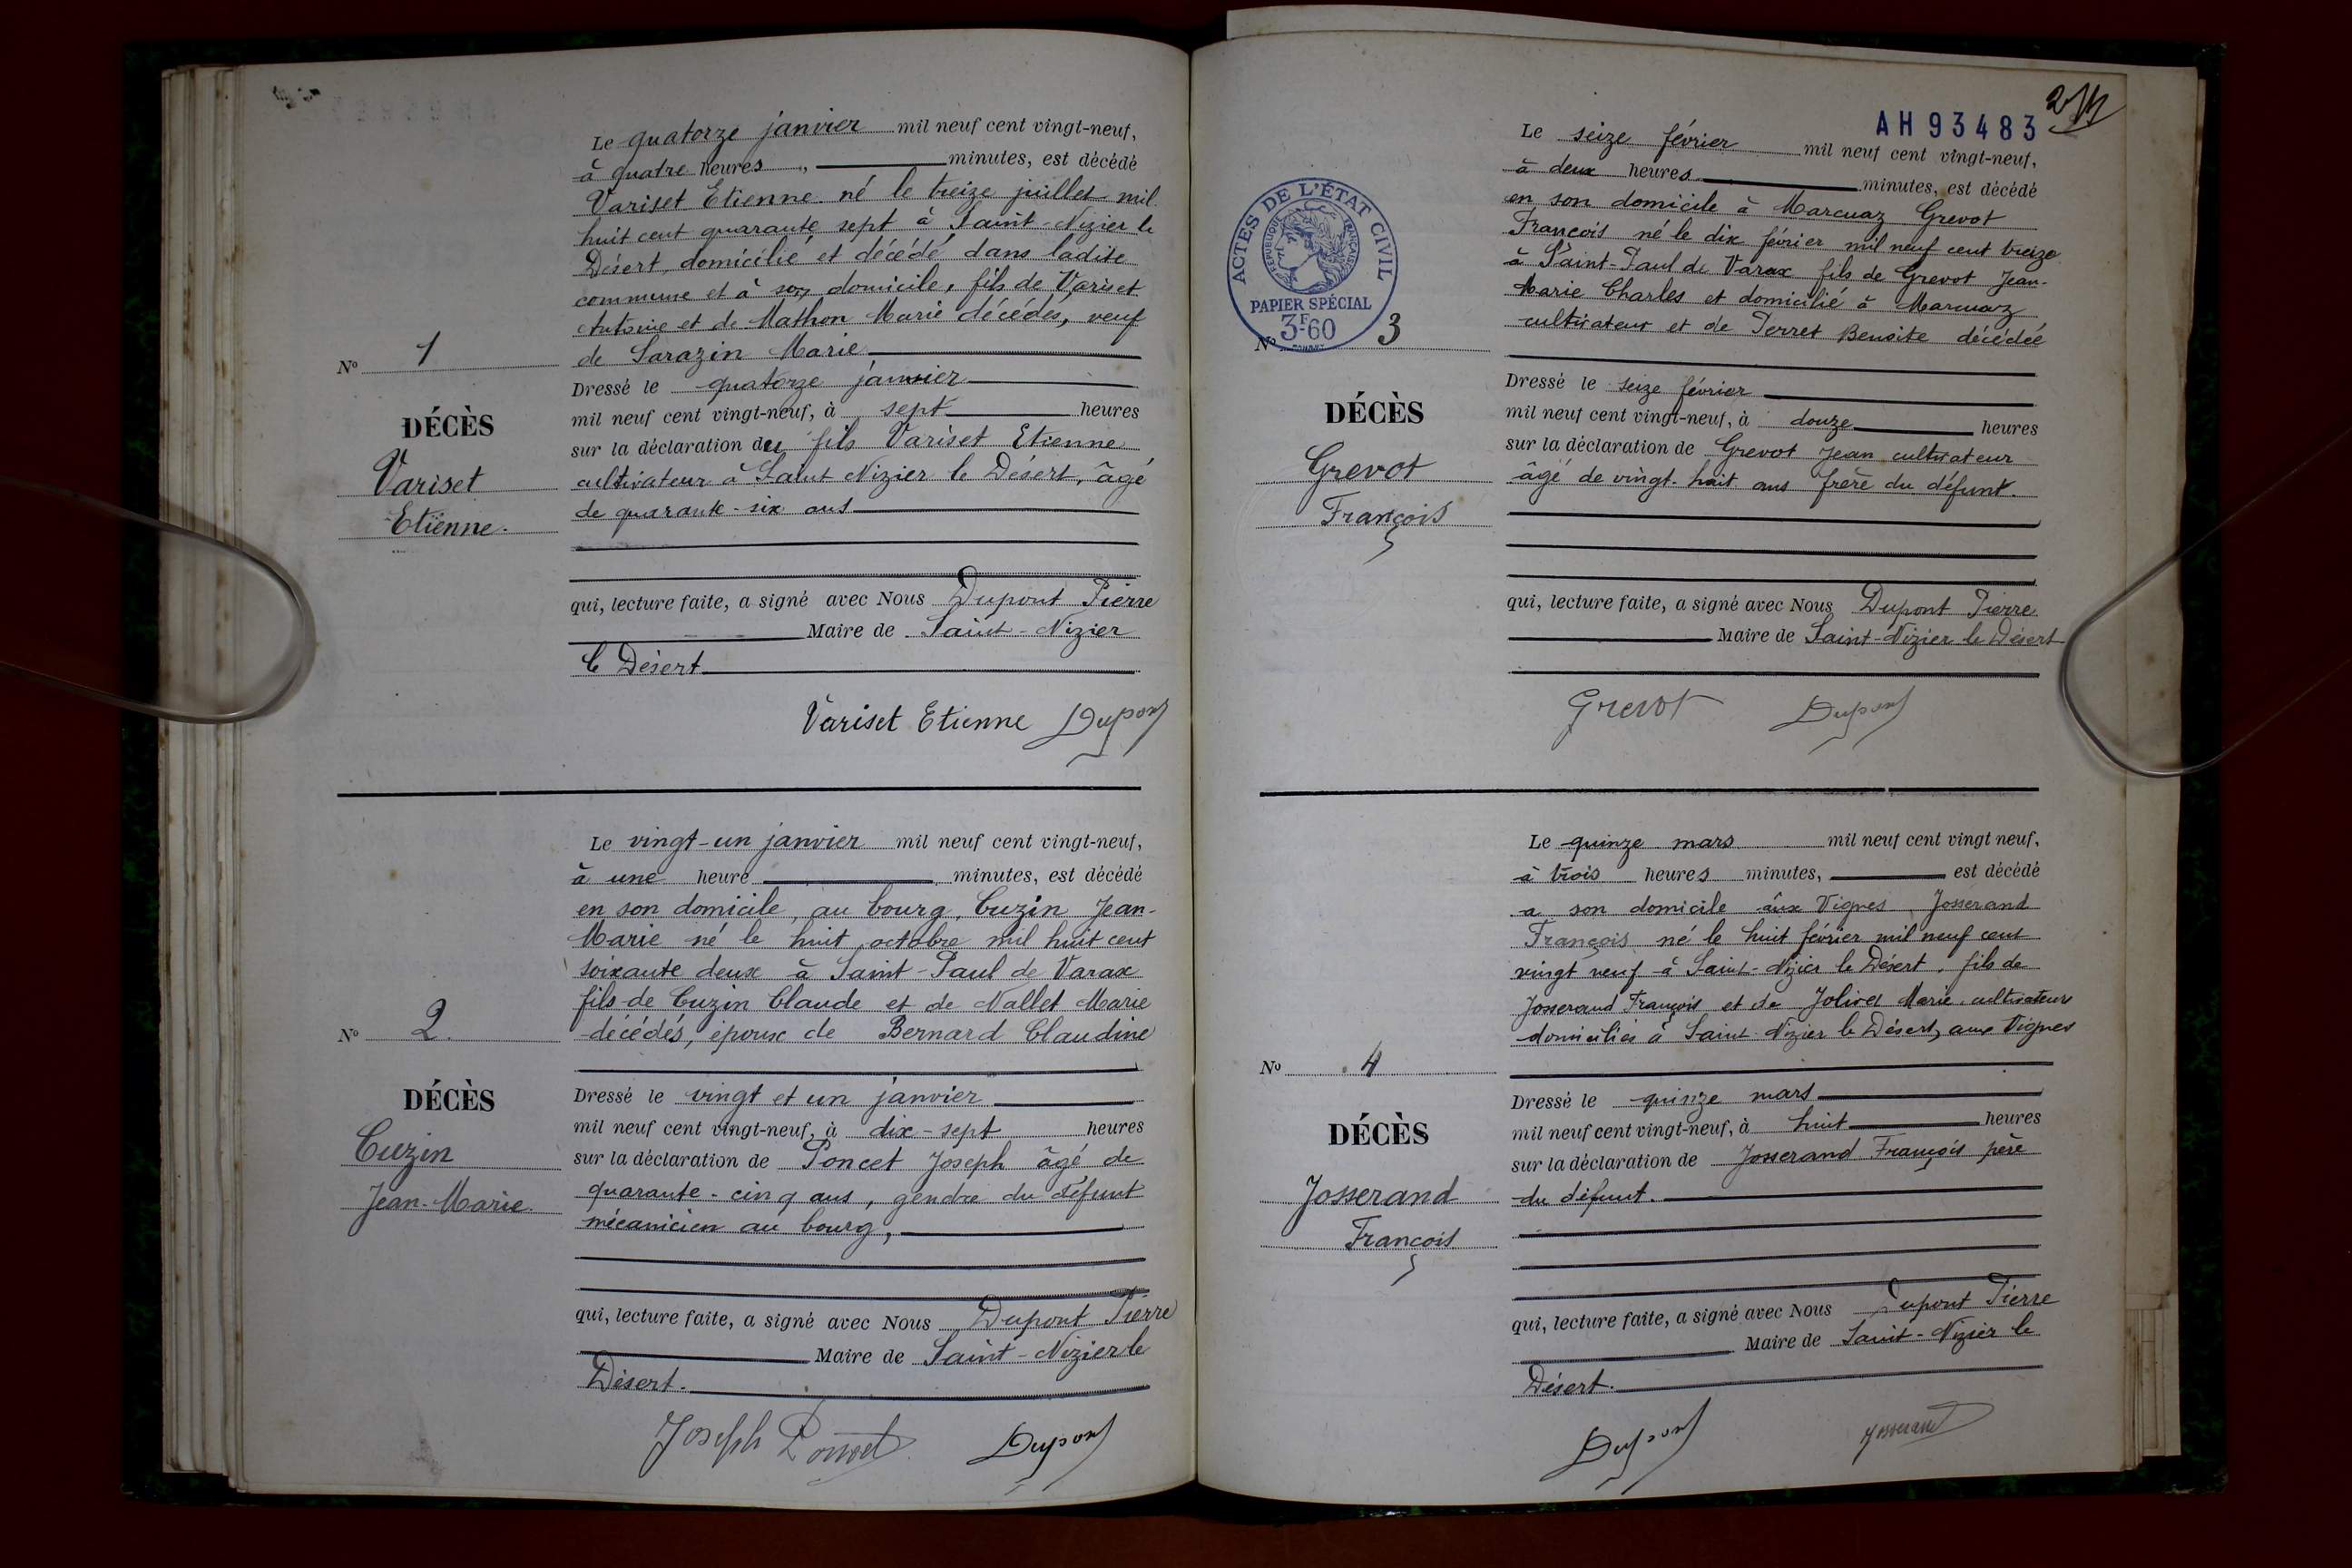 Le quatorze janvier mil neuf cent vingt-neuf,
à quatre heures minutes, est décédé
Variset Etienne né le treize juillet mil
huit cent quarante sept à Saint-Nizier le
Désert, domicilié et décédé dans ladite
commune et à son domicile, fils de Variset
Antoine et de Mathon Marie décédés, veuf
de Sarazin Marie
No 1
DÉCÈS
Variset
Etienne.
Dressé le quatorze janvier
mil neuf cent vingt-neuf, à sept heures
sur la déclaration du fils Variset Etienne
cultivateur à Saint Nizier le Désert, âgé
de quarante-six ans
qui, lecture faite, a signé avec Nous Dupont Pierre
Maire de Saint-Nizier
le Désert
Variset Etienne Dupont
Le vingt-un janvier mil neuf cent vingt-neuf,
à une heure minutes, est décédé
en son domicile, au bourg, Cuzin Jean-
Marie né le huit octobre mil huit cent
soixante deux à Saint-Paul de Varax
fils de Cuzin Claude et de Nallet Marie
décédés, époux de Bernard Claudine
No 2.
DÉCÈS
Cuzin
Jean-Marie.
Dressé le vingt et un janvier
mil neuf cent vingt-neuf, à dix-sept heures
sur la déclaration de Poncet Joseph âgé de
quarante-cinq ans, gendre du défunt
mécanicien au bourg,
qui, lecture faite, a signé avec Nous Dupont Pierre
Maire de Saint-Nizier le
Désert.
Joseph Poncet Dupont
AH93483
2
ACTES DE L'ÉTAT CIVIL
RÉPUBLIQUE FRANÇAISE
PAPIER SPÉCIAL
3F60
Le seize février mil neuf cent vingt-neuf,
à deux heures minutes, est décédé
en son domicile à Marcuaz Grevot
François né le dix février mil neuf cent treize
à Saint-Paul de Varax fils de Grevot Jean-
Marie Charles et domicilié à Marcuaz
cultivateur et de Perret Benoite décédée
No 3
DÉCÈS
Grevot
François
Dressé le seize février
mil neuf cent vingt-neuf, à douze heures
sur la déclaration de Grevot Jean cultivateur
âgé de vingt-huit ans frère du défunt.
qui, lecture faite, a signé avec Nous Dupont Pierre
Maire de Saint-Nizier le Désert
Grevot Dupont
Le quinze mars mil neuf cent vingt neuf,
à trois heures minutes, est décédé
a son domicile aux Vignes Josserand
François né le huit février mil neuf cent
vingt neuf à Saint-Nizier le Désert, fils de
Josserand François et de Jolivet Marie cultivateurs
domiciliés à Saint-Nizier le Désert, aux Vignes
No 4
DÉCÈS
Josserand
François
Dressé le quinze mars
mil neuf cent vingt-neuf, à huit heures
sur la déclaration de Josserand François père
du défunt.
qui, lecture faite, a signé avec Nous Dupont Pierre
Maire de Saint-Nizier le
Désert.
Dupont Josserand